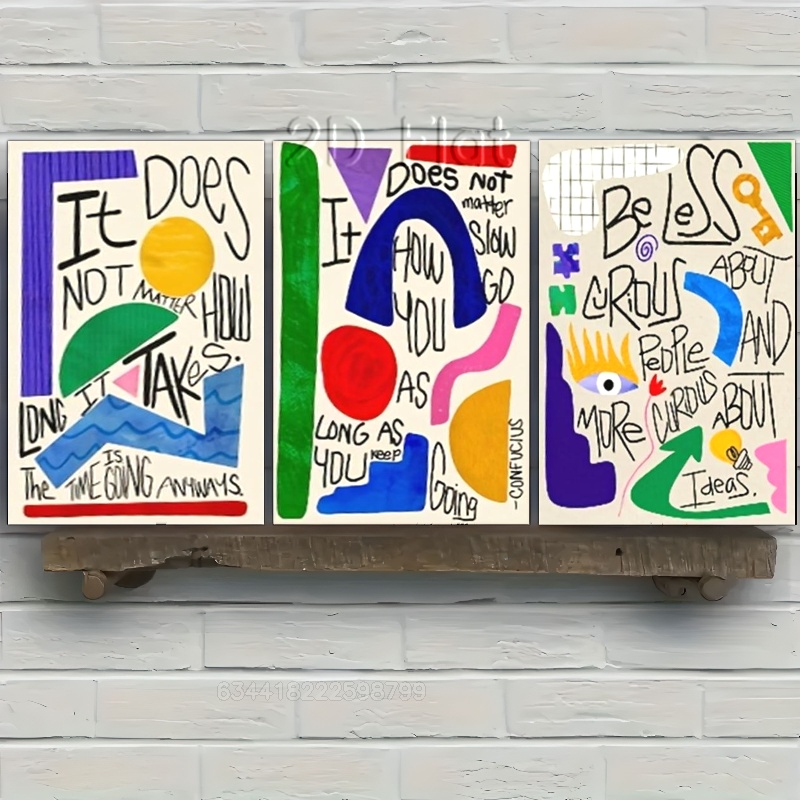 It DOES
NOT MATTER HOW
LONG IT TAKES.
The TIME IS GOING ANYWAYS.
It DOES NOT
matter
HOW SLOW
YOU GO
AS
LONG AS
YOU keep
Going
-CONFUCIUS
Be LESS
CURIOUS ABOUT
PEOPLE AND
MORE CURIOUS ABOUT
Ideas.
2D Flat
634418222598799